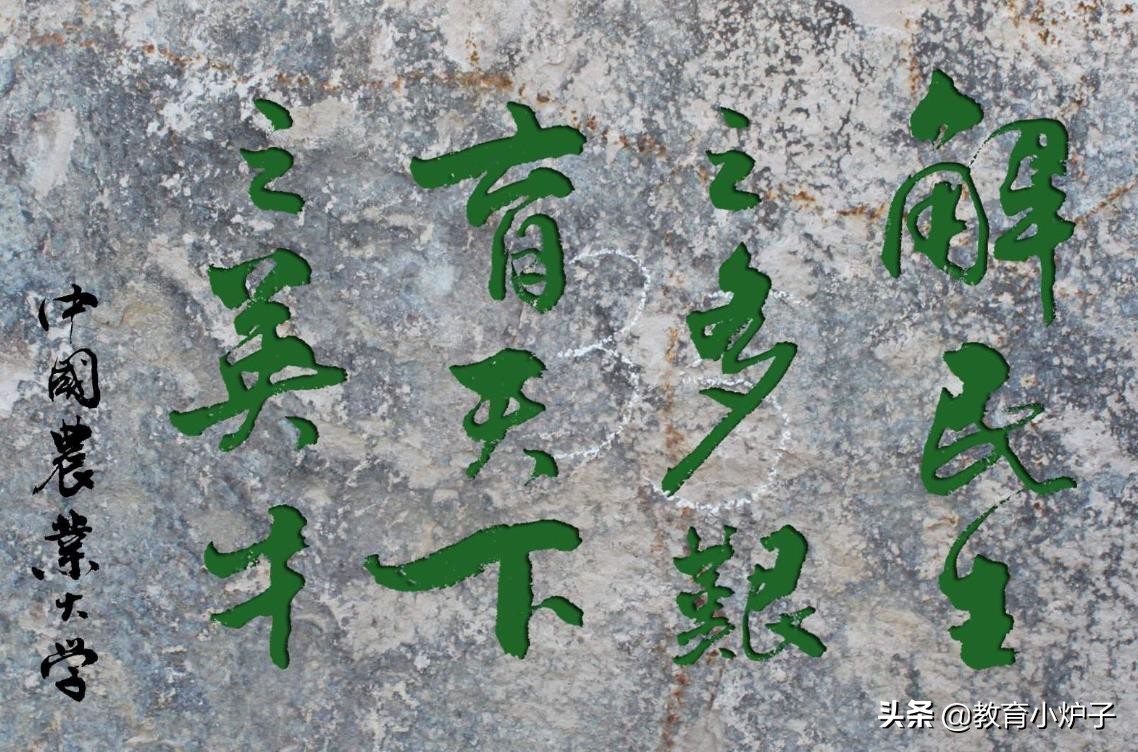 解民生
之多艱
育天下
之英才
中國農業大学
头条 @教育小炉子